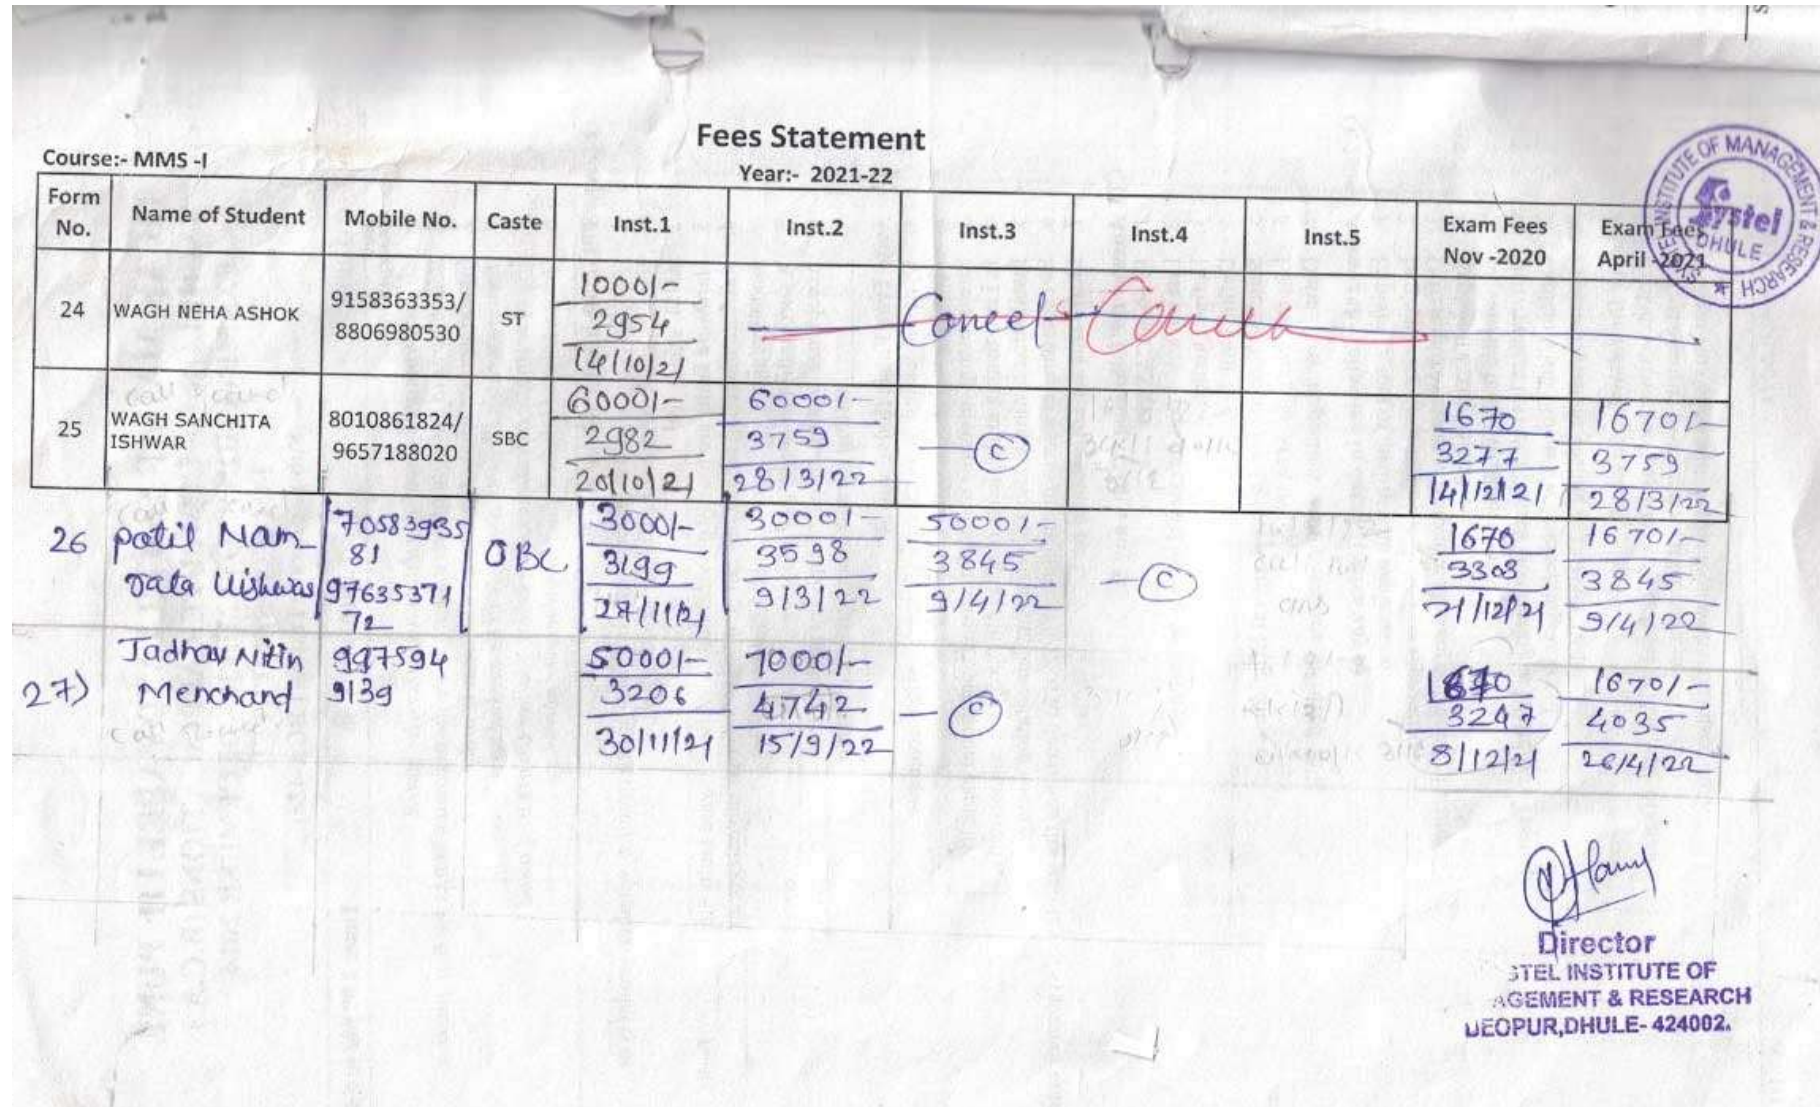 Fees Statement
Course:- MMS -I
Year:- 2021-22
Form No. Name of Student Mobile No. Caste Inst.1 Inst.2 Inst.3 Inst.4 Inst.5 Exam Fees Nov -2020 Exam Fees April -2021
24 WAGH NEHA ASHOK 9158363353/ 8806980530 ST 1000/- 2954 14/10/21 Cancel Cancel
25 WAGH SANCHITA ISHWAR 8010861824/ 9657188020 SBC 6000/- 2982 20/10/21 6000/- 3759 28/3/22 C 1670 3277 14/12/21 1670/- 3759 28/3/22
26 Patil Nam 7058393581 9763537172 OBC 3000/- 3199 27/11/21 3000/- 3598 9/3/22 5000/- 3845 9/4/22 C 1670 3303 21/12/21 1670/- 3845 9/4/22
27) Jadhav Nitin Menchand 997594 9139 5000/- 3206 30/11/21 7000/- 4742 15/9/22 C 1670 3247 8/12/21 1670/- 4035 26/4/22
INSTITUTE OF MANAGEMENT & RESEARCH
Systel
DHULE
Director
STEL INSTITUTE OF
AGEMENT & RESEARCH
DEOPUR,DHULE- 424002.